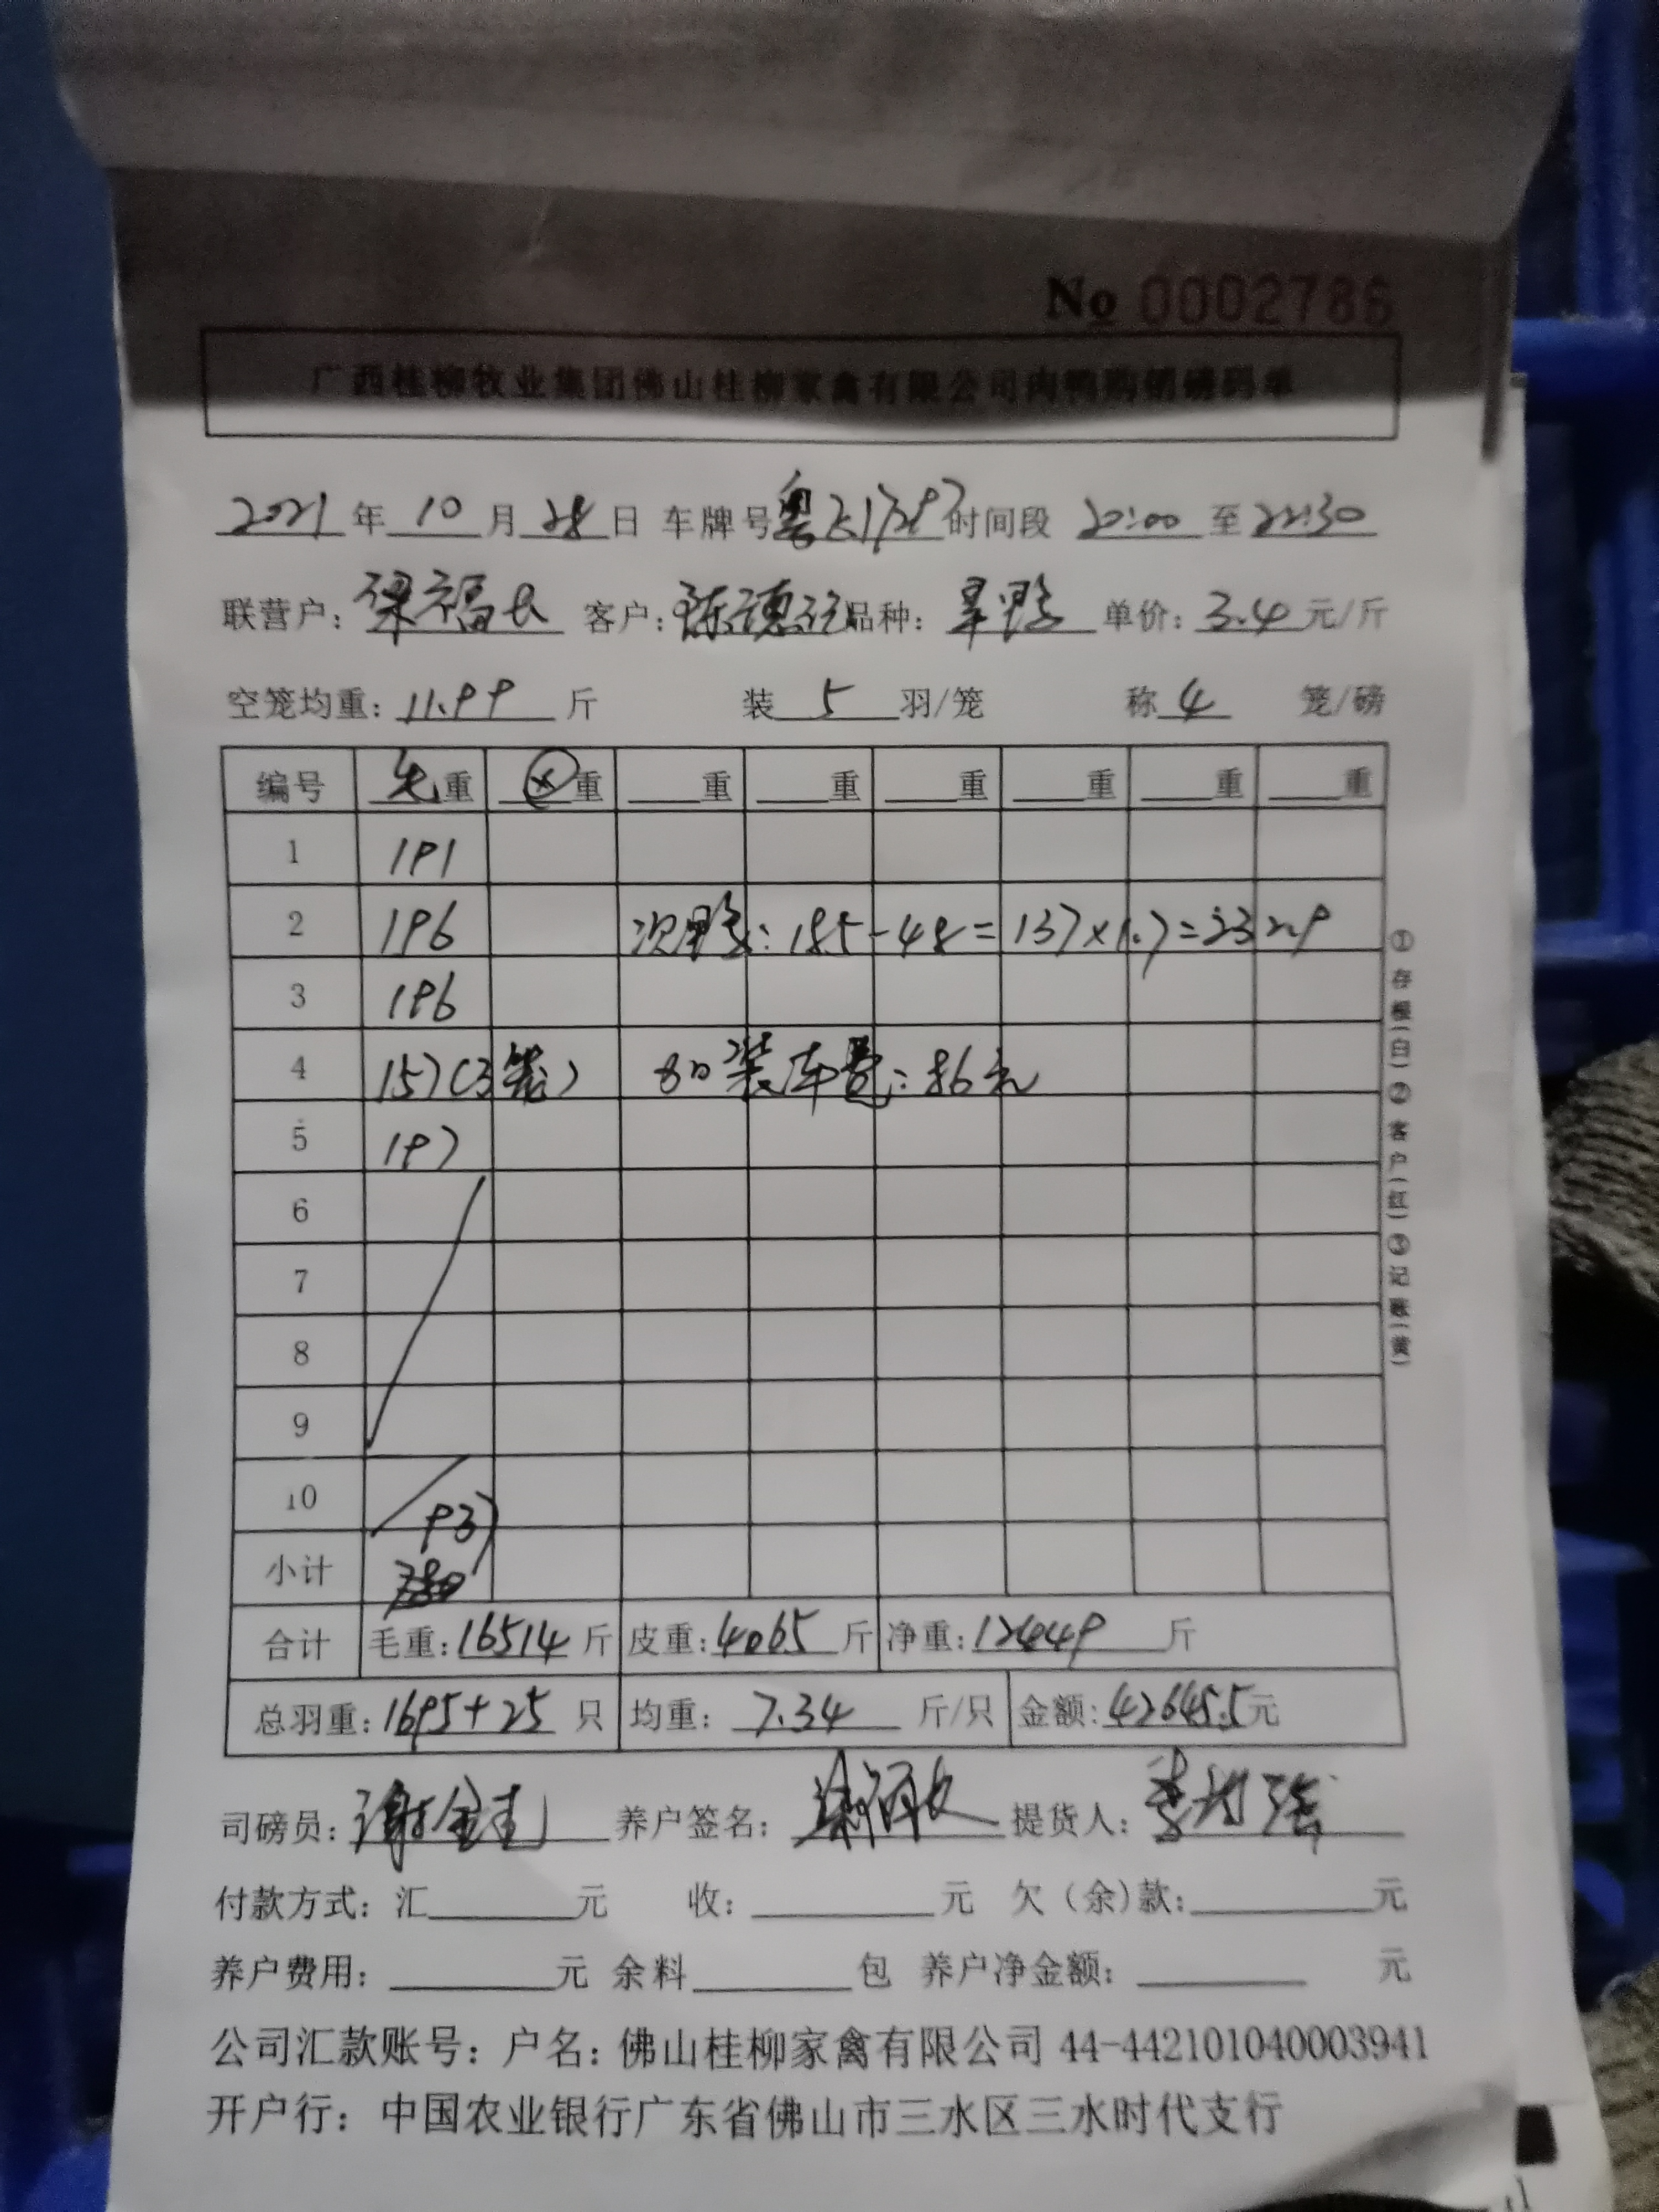 No 0002786
广西桂柳牧业集团佛山桂柳家禽有限公司肉鸭购销磅码单
2021年10月28日 车牌号粤 时间段 20:00 至 22:30
联营户: 梁福 客户: 陈德 品种: 鸭 单价: 3.4元/斤
空笼均重: 11.99 斤 装 5 羽/笼 称 4 笼/磅
编号 毛重 重 重 重 重 重 重 重
1 191
2 196 次鸭: 185-48=137×1.7=232.9
3 196
4 157(3笼) 加装车费: 86元
5 197
6
7
8
9
10 937
小计
合计 毛重: 16514 斤 皮重: 4065 斤 净重: 12449 斤
总羽重: 1695+25 只 均重: 7.34 斤/只 金额: 42645.5元
司磅员: 谢金 养户签名: 提货人: 李
付款方式: 汇 元 收: 元 欠(余)款: 元
养户费用: 元 余料 包 养户净金额: 元
公司汇款账号: 户名: 佛山桂柳家禽有限公司 44-442101040003941
开户行: 中国农业银行广东省佛山市三水区三水时代支行
①存根(白)②客户(红)③记账(黄)